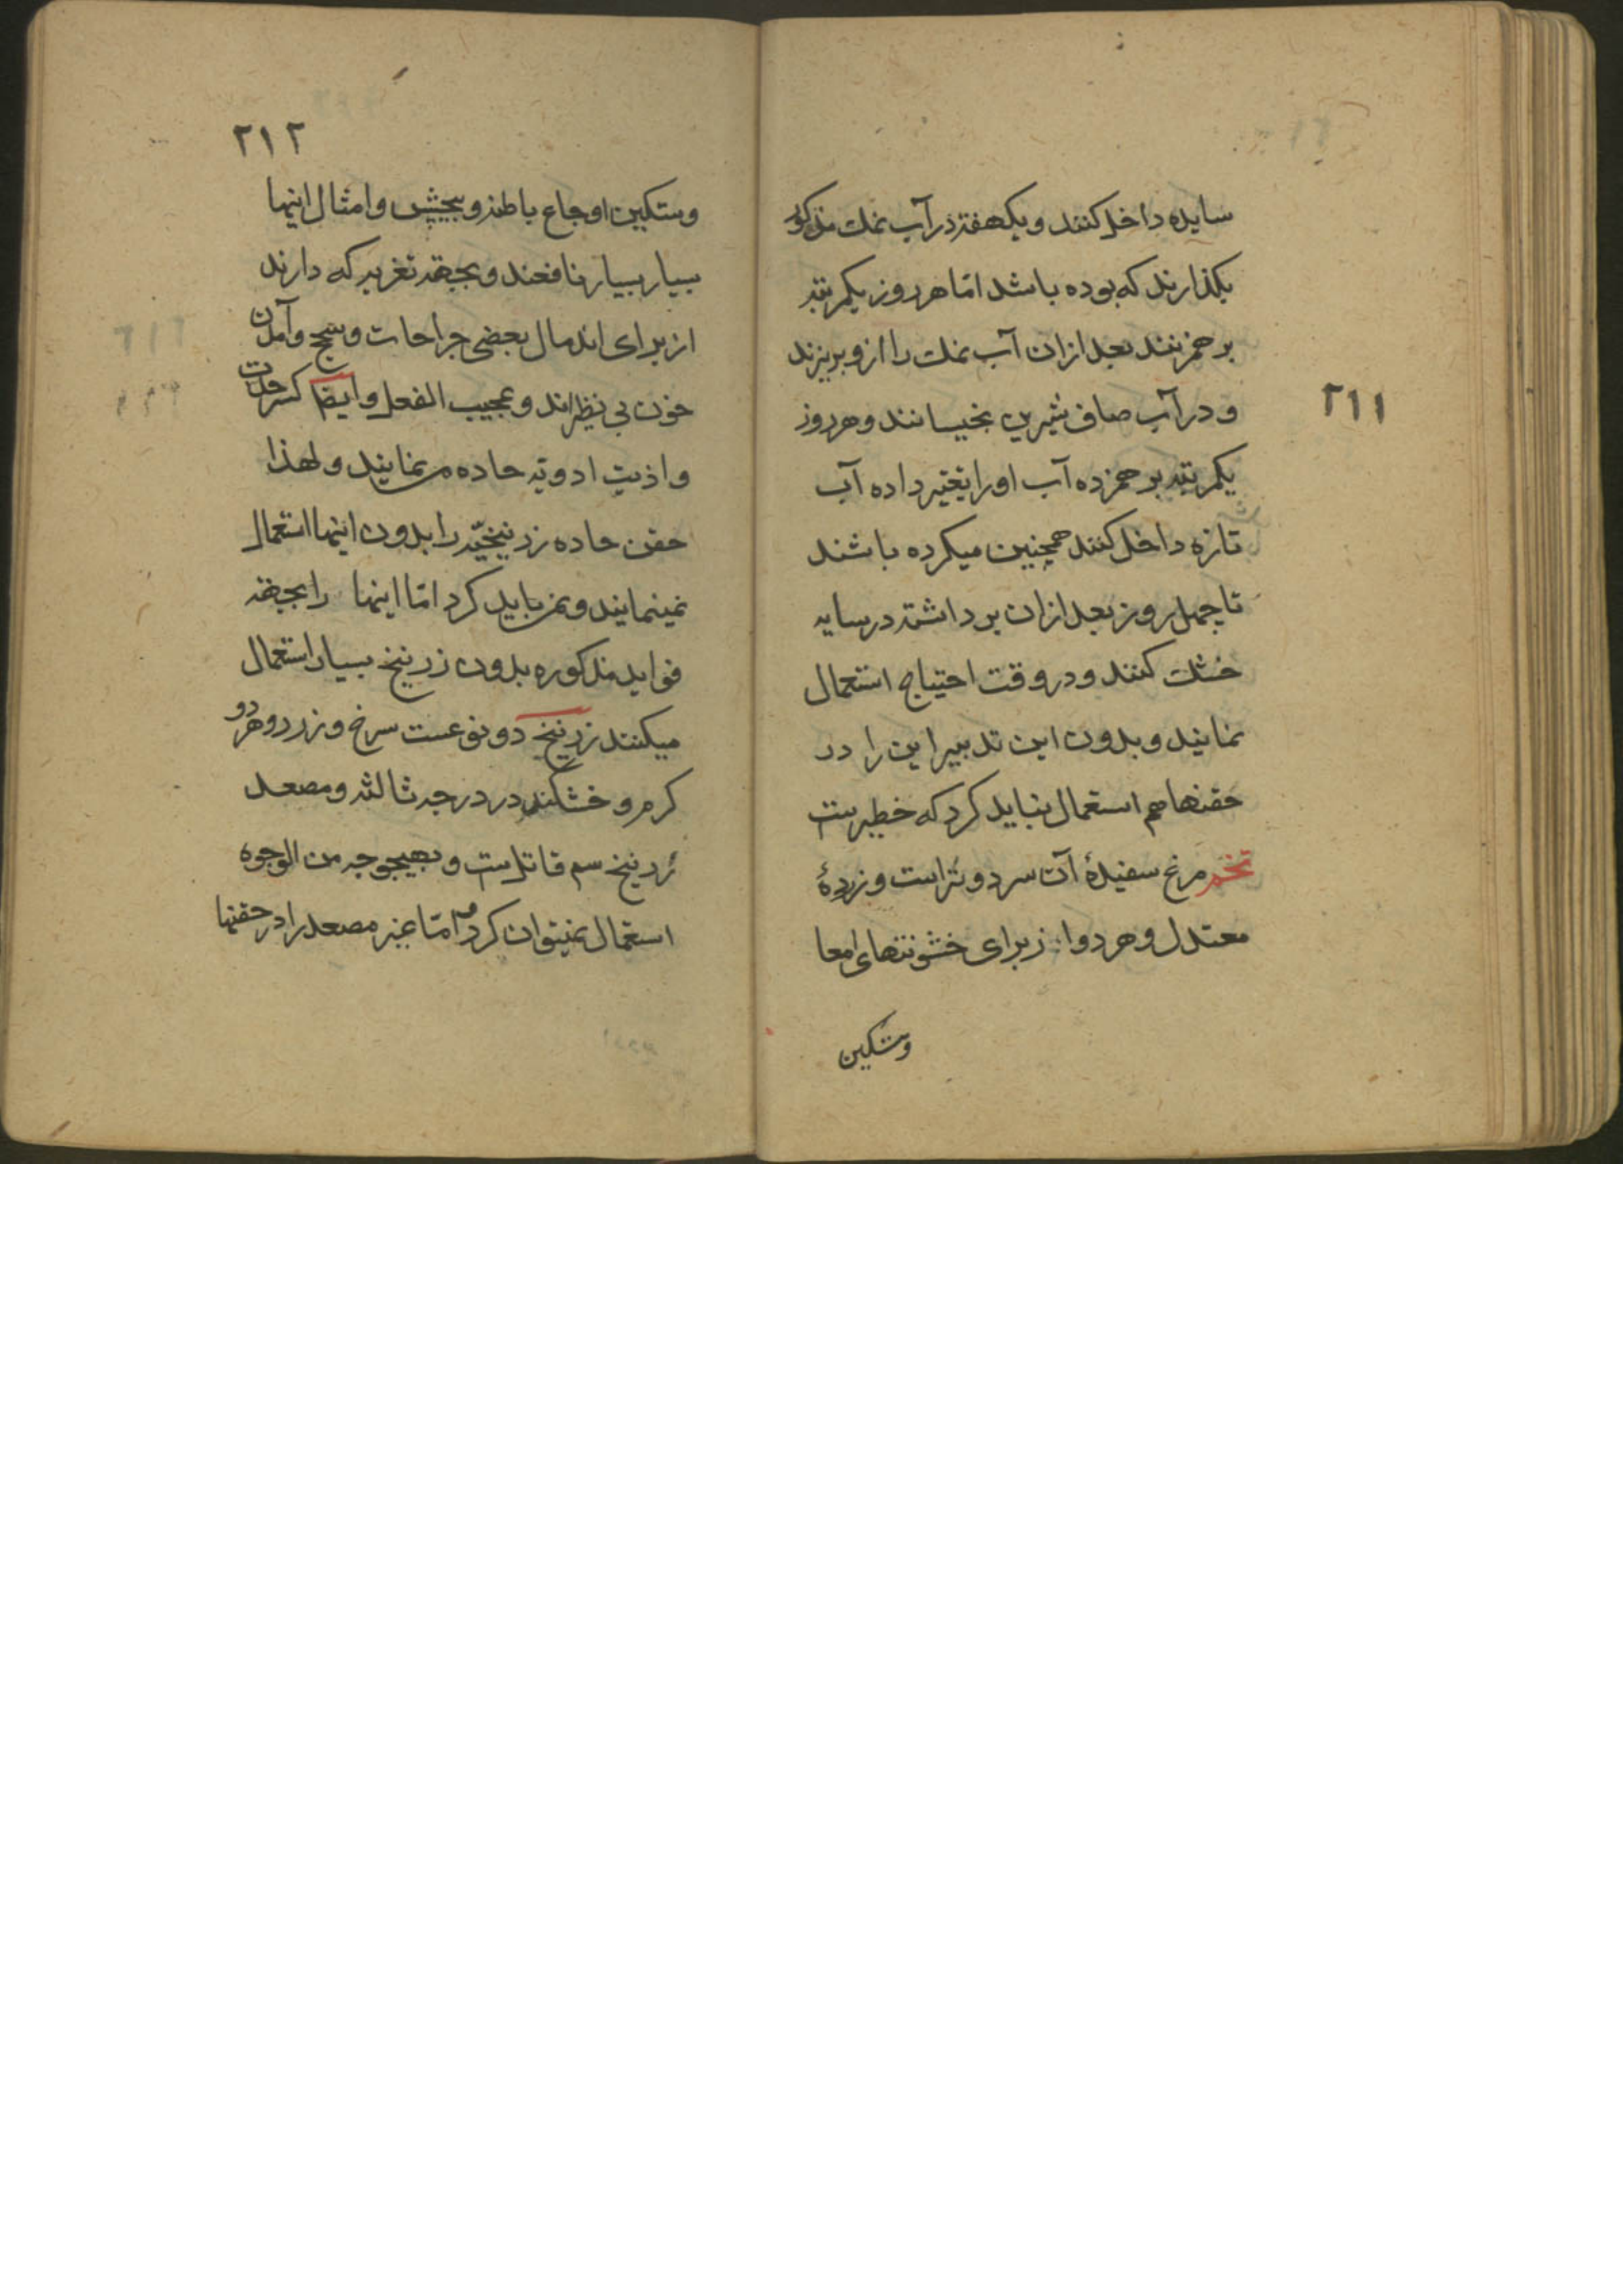 ۲۱۱
سایده داخل کنند و یکهفته در آب نمك مذکور
بکذارند که بوده باشد امّا هر روز یکمرتبه
برهم زنند بعد ازان آب نمك را ازو بریزند
و در آب صاف شیرین بخیسانند و هر روز
یکمرتبه برهم زده آب او را تغییر داده آب
تازه داخل کنند همچنین میکرده باشند
تا چهل روز بعد ازان برداشته در سایه
خشك کنند و در وقت احتیاج استعمال
نمایند و بدون این تدبیر این را در
حقنها هم استعمال نباید کرد که خطیرست
تخم مرغ سفیدۀ آن سرد و تر است و زردۀ
معتدل و هر دو از برای خشونتهای امعا
وتسکین
۲۱۲
وتسکین اوجاع باطنه و پیچش و امثال اینها
بسیار بسیار نافعند و بجهة تغریه که دارند
از برای اندمال بعضی جراحات و سحج و آمدن
خون بی نظیراند و عجیب الفعل و ایضا کسر حدّت
و اذیت ادویّه حاده می نمایند و لهذا
حقن حاده زرنیخیّه را بدون اینها استعمال
نمینمایند و نمی باید کرد امّا اینها را بجهة
فواید مذکوره بدون زرنیخ بسیار استعمال
میکنند زرنیخ دو نوعست سرخ و زرد و هر دو
کرم و خشکند در درجه ثالثه و مصعد
زرنیخ سم قاتلست و بهیچوجه من الوجوه
استعمال نمیتوان کرد امّا غیر مصعد را در حقنها